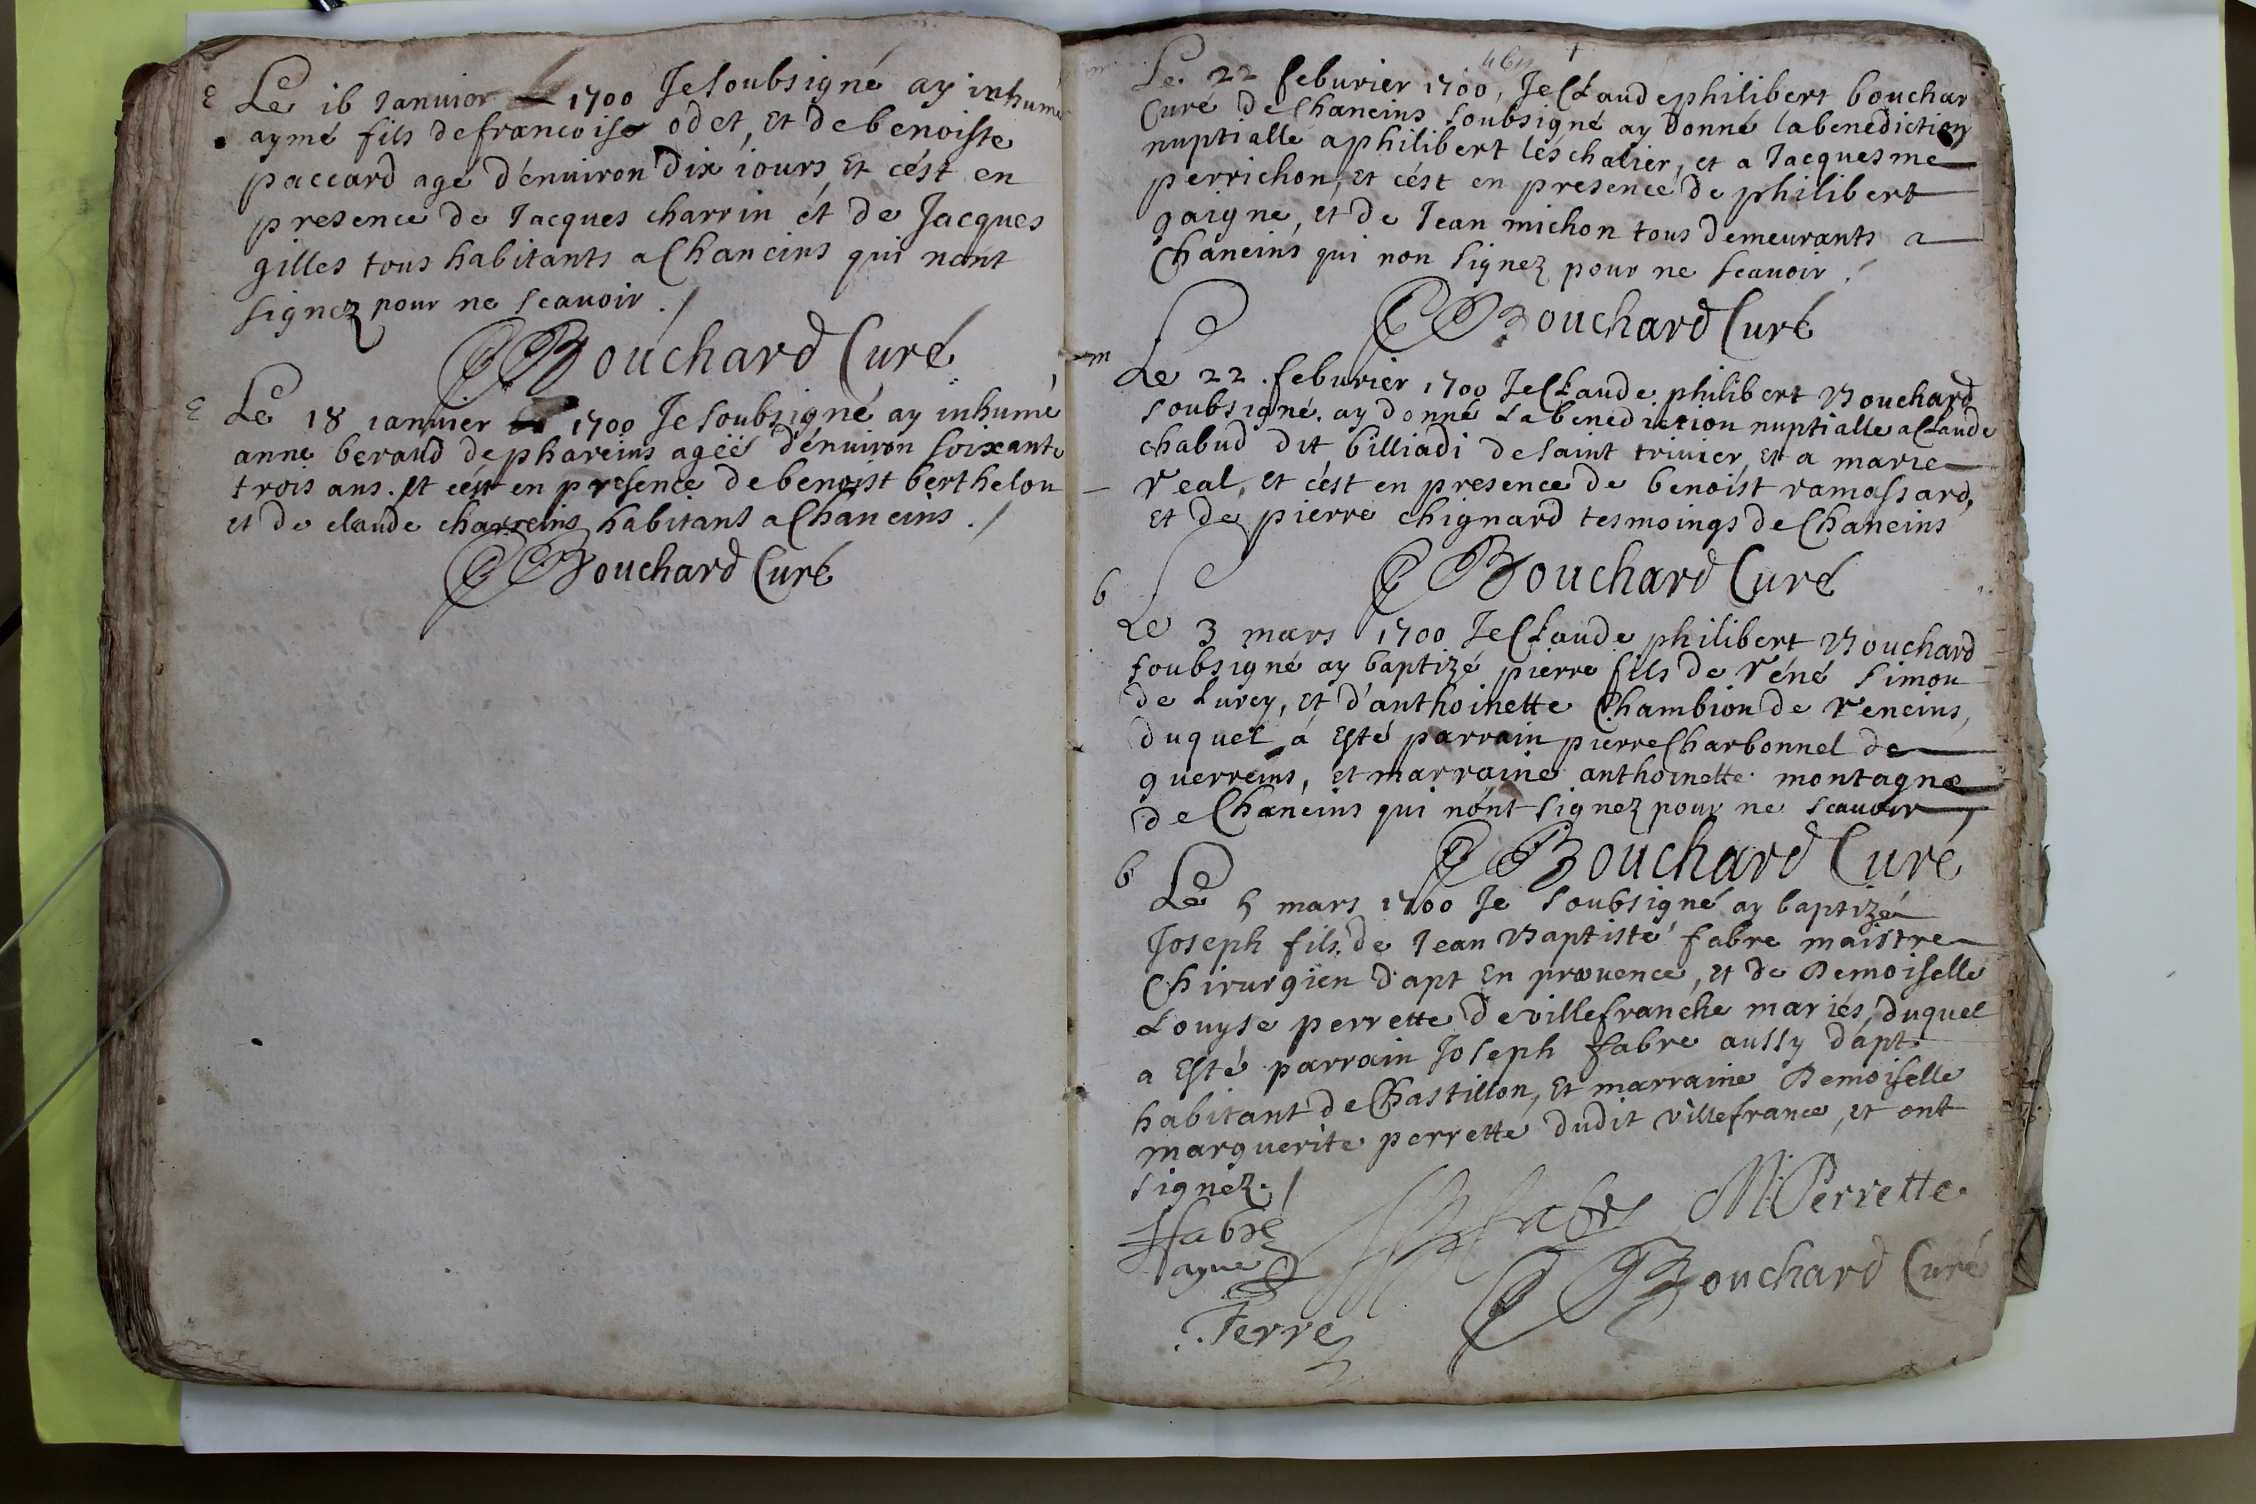 e Le 16 Ianuier 1700 Je soubsigné ay inhumé
aymé fils de francoise odet, et de benoiste
paccard agé d'énuiron dix iours, Et cést en
presence de Jacques charrin ét de Jacques
gilles tous habitants a Chaneins qui nont
signez pour ne scauoir ./
C P Bouchard Curé
e Le 18 ianuier 1700 Je soubsigné ay inhumé
anne beraud de phareins ageé d'énuiron soixante
trois ans. Et cést en présence de benoist berthelon
et de claude charreins habitans a Chaneins ./
C P Bouchard Curé
Le 22 feburier 1700, Je Claude philibert bouchar
Curé de Chaneins soubsigné ay donné la benediction
nuptialle a philibert léschalier, et a Jacquesme
perrichon, et cést en presence de philibert
gaigne, et de Jean michon tous demeurants a
Chaneins qui non signez pour ne scauoir ./
C P Bouchard Curé
m
Le 22 feburier 1700 Je Claude philibert Bouchard
soubsigné ay donné la benediction nuptialle a Claude
chabud dit billiadi de saint triuier, et a marie
real, et cést en presence de benoist ramassard,
et de pierre chignard tesmoings de Chaneins
C P Bouchard Curé
b
Le 3 mars 1700 Je Claude philibert Bouchard
soubsigné ay baptizé pierre fils de réné simon
de Lurcy, et d'anthoinette Chambion de reneins,
duquel á Esté parrain pierre Charbonnel de
guerreins, et marraine anthoinette montagne
de Chaneins qui nónt signez pour ne scauoir
C P Bouchard Curé
b
Le 5 mars 1700 Je soubsigné ay baptizé
Joseph fils de Jean Baptiste fabre maistre
Chirurgien d'apt En prouence, et de Demoiselle
Louyse perrette de villefranche mariés, duquel
a Esté parrain Joseph fabre aussy dapt
habitant de Chastillon, Et marraine Demoiselle
marguerite perrette dudit villefrance, et ont
signez ./
fabre M Perrette
C P Bouchard Curé
Ferre